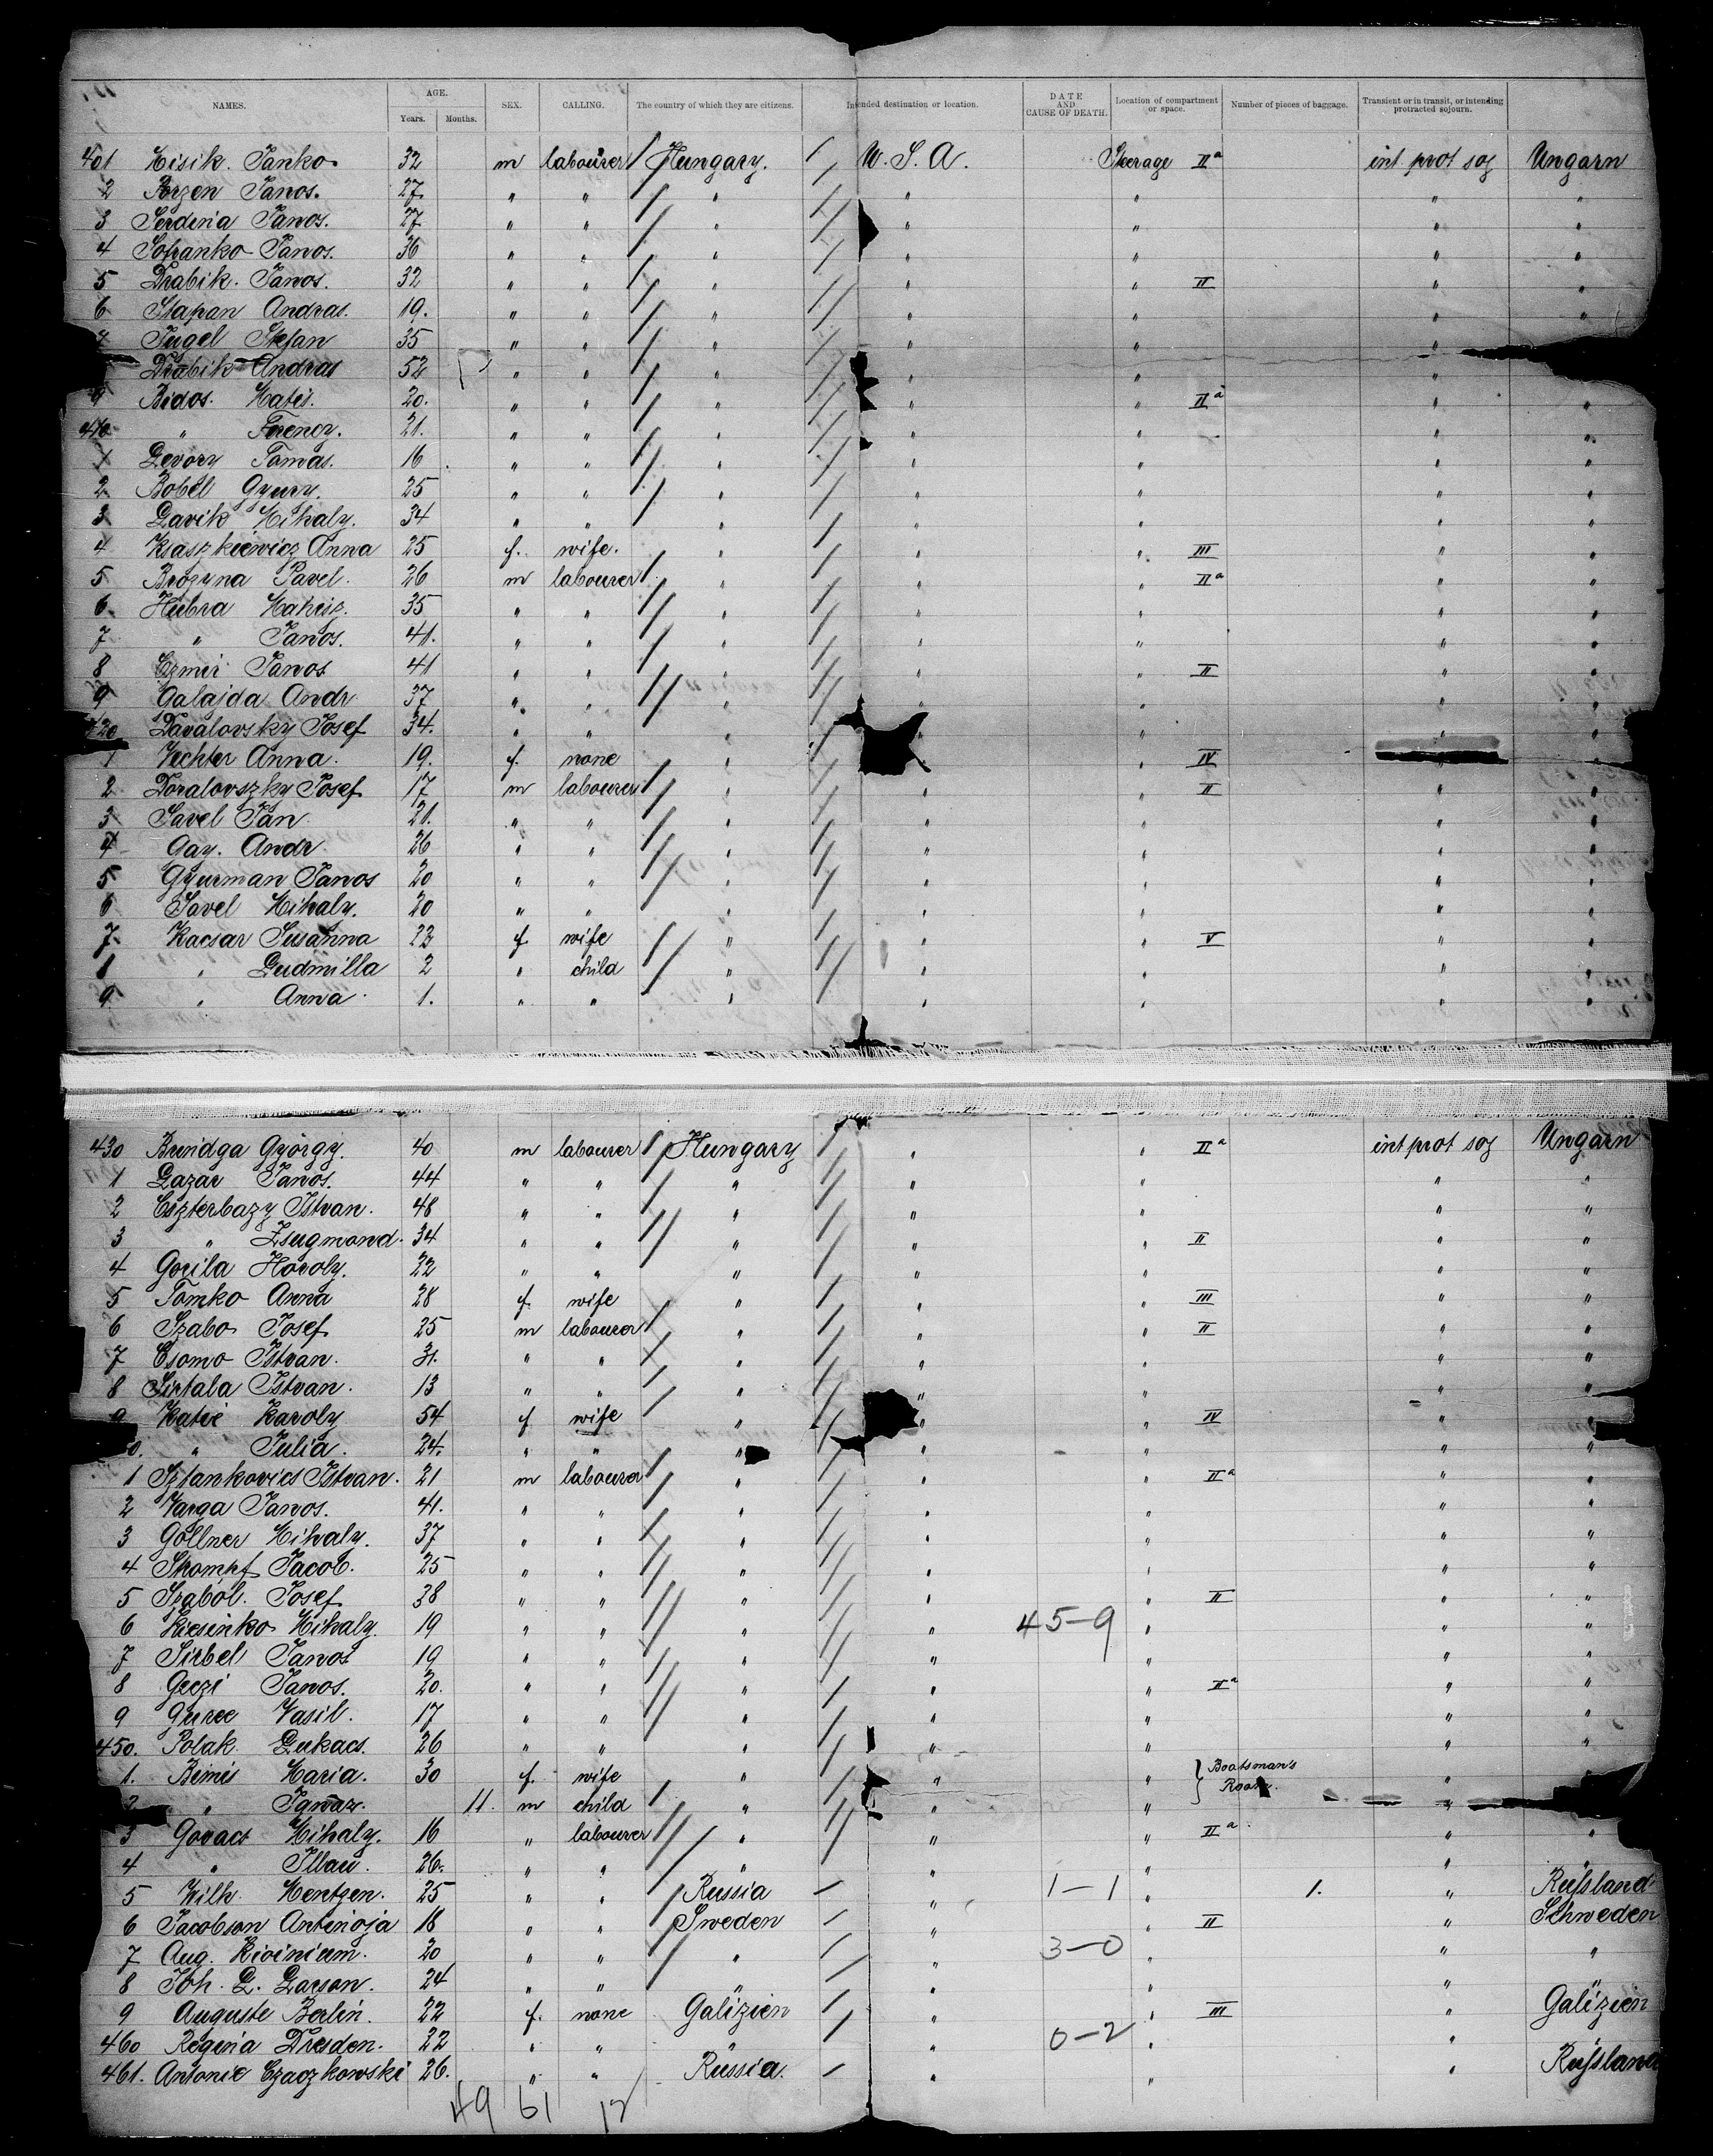 NAMES. AGE. Years. Months. SEX. CALLING. The country of which they are citizens. Intended destination or location. DATE AND CAUSE OF DEATH. Location of compartment or space. Number of pieces of baggage. Transient or in transit, or intending protracted sojourn.
401 Misik. Janko 32 m labourer Hungary. U. S. A. Steerage IIa int prot soj Ungarn
2 Janos. 27 " " " " " " "
3 Serdina Janos. 27 " " " " " " "
4 Sofranko Janos. 36 " " " " " " "
5 Drabik. Janos. 32 " " " " " II " "
6 Stapan Andras. 19. " " " " " " "
7 Jugel Stefan 35 " " " " " "
Drabik Andras 52 " " " " " "
9 Bidos. Matis. 20. " " " " " IIa " "
410 " Ferency. 21. " " " " " " "
1 Devory Tomas. 16 " " " " " " "
2 Bobel Gyury. 25 " " " " " " "
3 Lavik Mihaly. 34 " " " " " " "
4 Kraszkiewicz Anna 25 f. wife. " " " III " "
5 Brozyna Pavel. 26 m labourer " " " IIa " "
6 Hubra 35 " " " " " " "
7 " Janos. 41. " " " " " " "
8 Czmir Janos 41 " " " " " II " "
9 Galajda Andr 37 " " " " " " "
420 Davalovsky Josef 34. " " " " " "
1 Vechter Anna. 19. f. none " " IV "
2 Doralovszky Josef 17 m labourer " " " II " "
3 Savel Jan 21. " " " " " " "
4 Gay. Andr. 26 " " " " " " "
5 Gyurman Janos 20 " " " " " " "
6 Savel Mihaly. 20 " " " " " " "
7 Kacsar Susanna 23 f. wife " " " V " "
8 " Ludmilla 2 " child " " " " "
9 " Anna. 1. " " " " " " "
430 Bundga György. 40 m labourer Hungary " " IIa int prot soj Ungarn
1 Lazar Janos. 44 " " " " " " "
2 Eszterbazy Istvan. 48 " " " " " " "
3 " Zsugmond. 34 " " " " " II " "
4 Gorila Haroly. 22 " " " " " " "
5 Tomko Anna 28 f. wife " " " III " "
6 Szabo Josef 25 m labourer " " " II " "
7 Csomo Istvan. 31. " " " " " " "
8 Sirtala Istvan. 13 " " " " " " "
9 Katie Karoly 54 f wife " " " IV " "
0. " Julia. 24. " " " " " " "
1 Sztankovics Istvan. 21 m labourer " " " IIa " "
2 Varga Janos. 41. " " " " " " "
3 Göllner Mihaly. 37 " " " " " " "
4 Stompf Jacob. 25 " " " " " " "
5 Szabol. Josef 38 " " " " " II " "
6 Mihaly. 19 " " " " 45-9 " " "
7 Sirbel Janos 19 " " " " " " "
8 Geczi Janos. 20. " " " " " IIa " "
9 Guree Vasil. 17 " " " " " " "
450. Polak Lukacs. 26 " " " " " " "
1. Bimis Maria. 30 f. wife " " " Boatsman's Room. " "
2 " 11. m child " " " "
3 Govacs Mihaly. 16 " labourer " " " IIa. " "
4 " Illau. 26. " " " " " " "
5 Wilh. Mentzen. 25 " " Russia " 1-1 " 1. " Rußland
6 Jacobson Antinoja 18 " " Sweden " " II " Schweden
7 Aug. Kivinium. 20 " " " " 3-0 " " "
8 Joh. L. Larson. 24 " " " " " " "
9 Auguste Berlin. 22 f. none Galizien " " III " Galizien
460 Regina Dresden. 22 " " " " 0-2 " " "
461. Antonie Czaczkowski 26. " " Russia. " " " Rußland
49 61 12